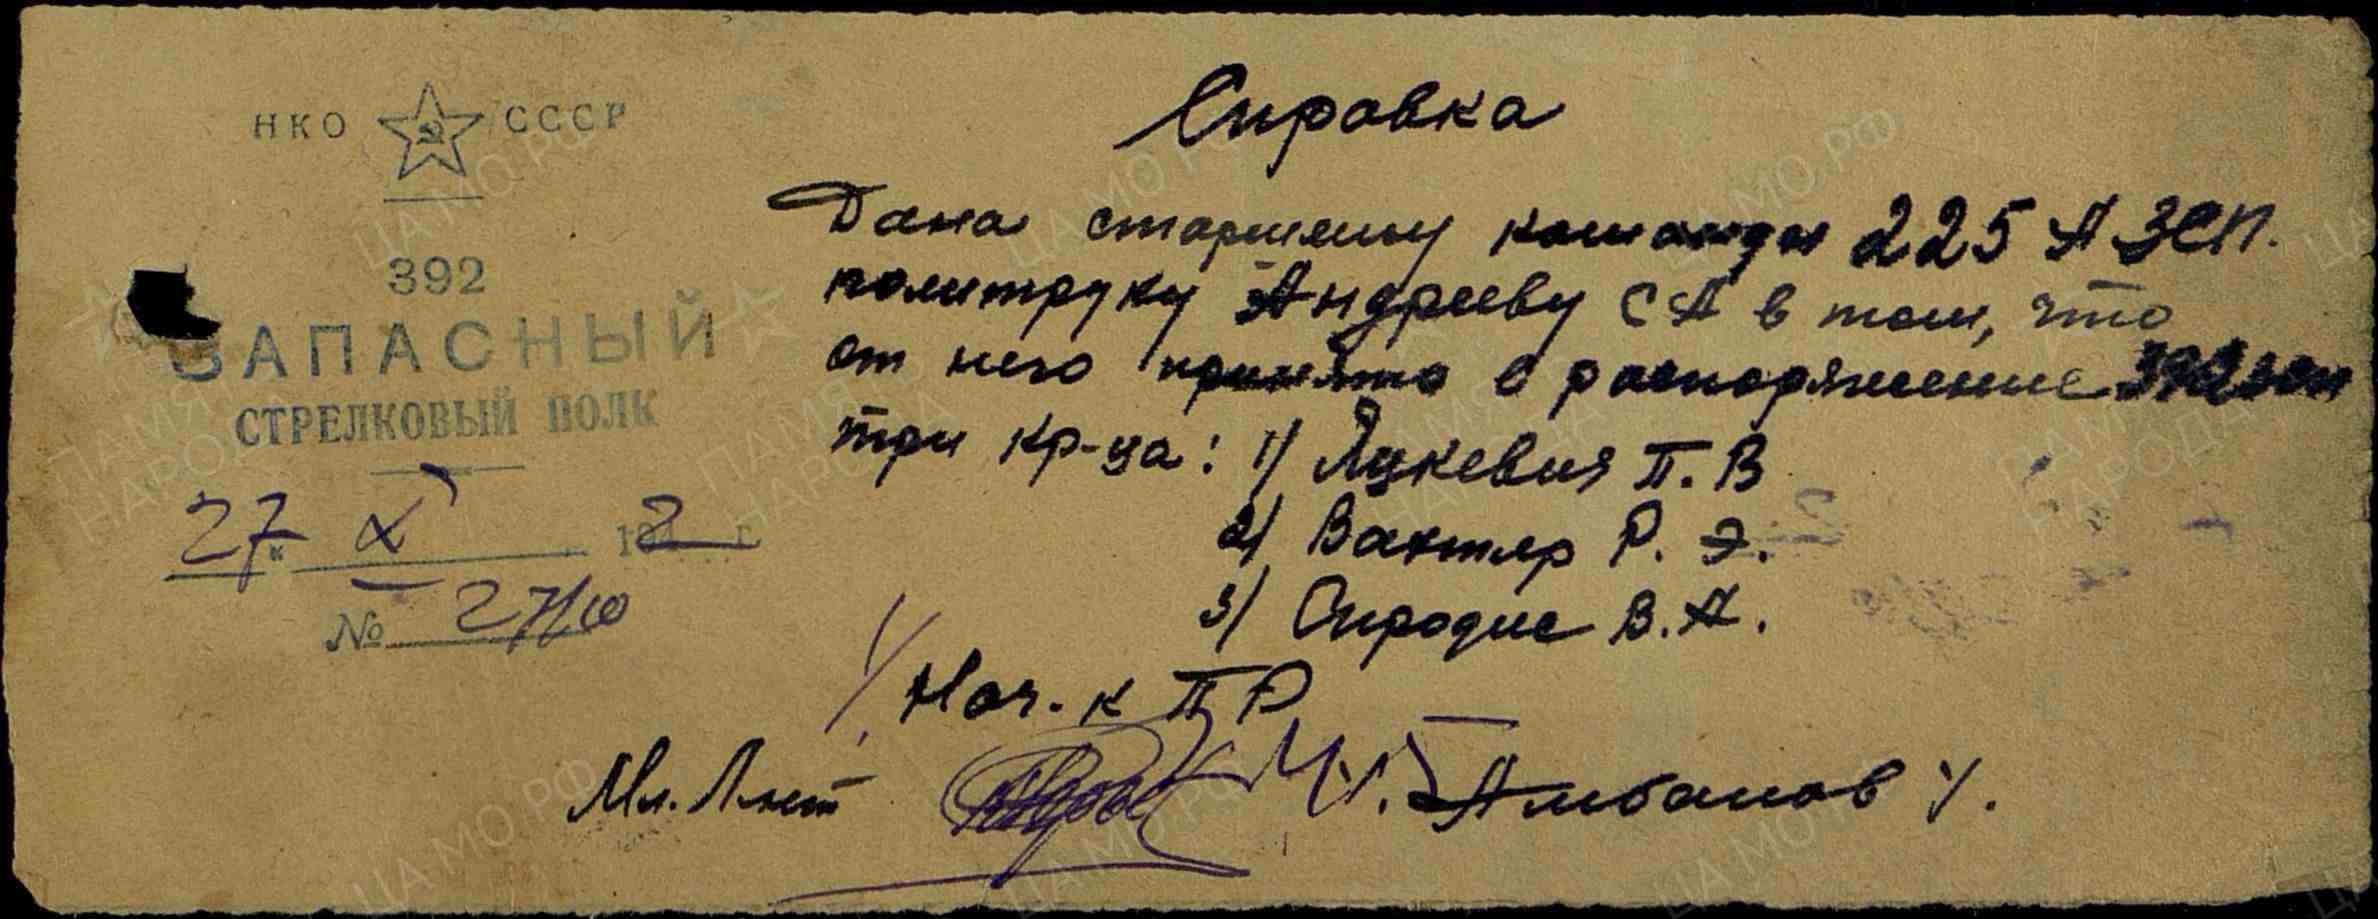 НКО СССР
392
ЗАПАСНЫЙ
СТРЕЛКОВЫЙ ПОЛК
27 " X 1942 г.
№ 27/10
Справка
Дана старшему команды 225 АЗСП.
политруку Андрееву С А в том, что
от него принято в распоряжение 392 зсп
три кр-ца: 1/ Яцкевич П. В
2/ Вахтер Р. Э.
3/ Сиродис В. А.
Нач. к П Р
Мл. Л-нет
/. Албанов /.